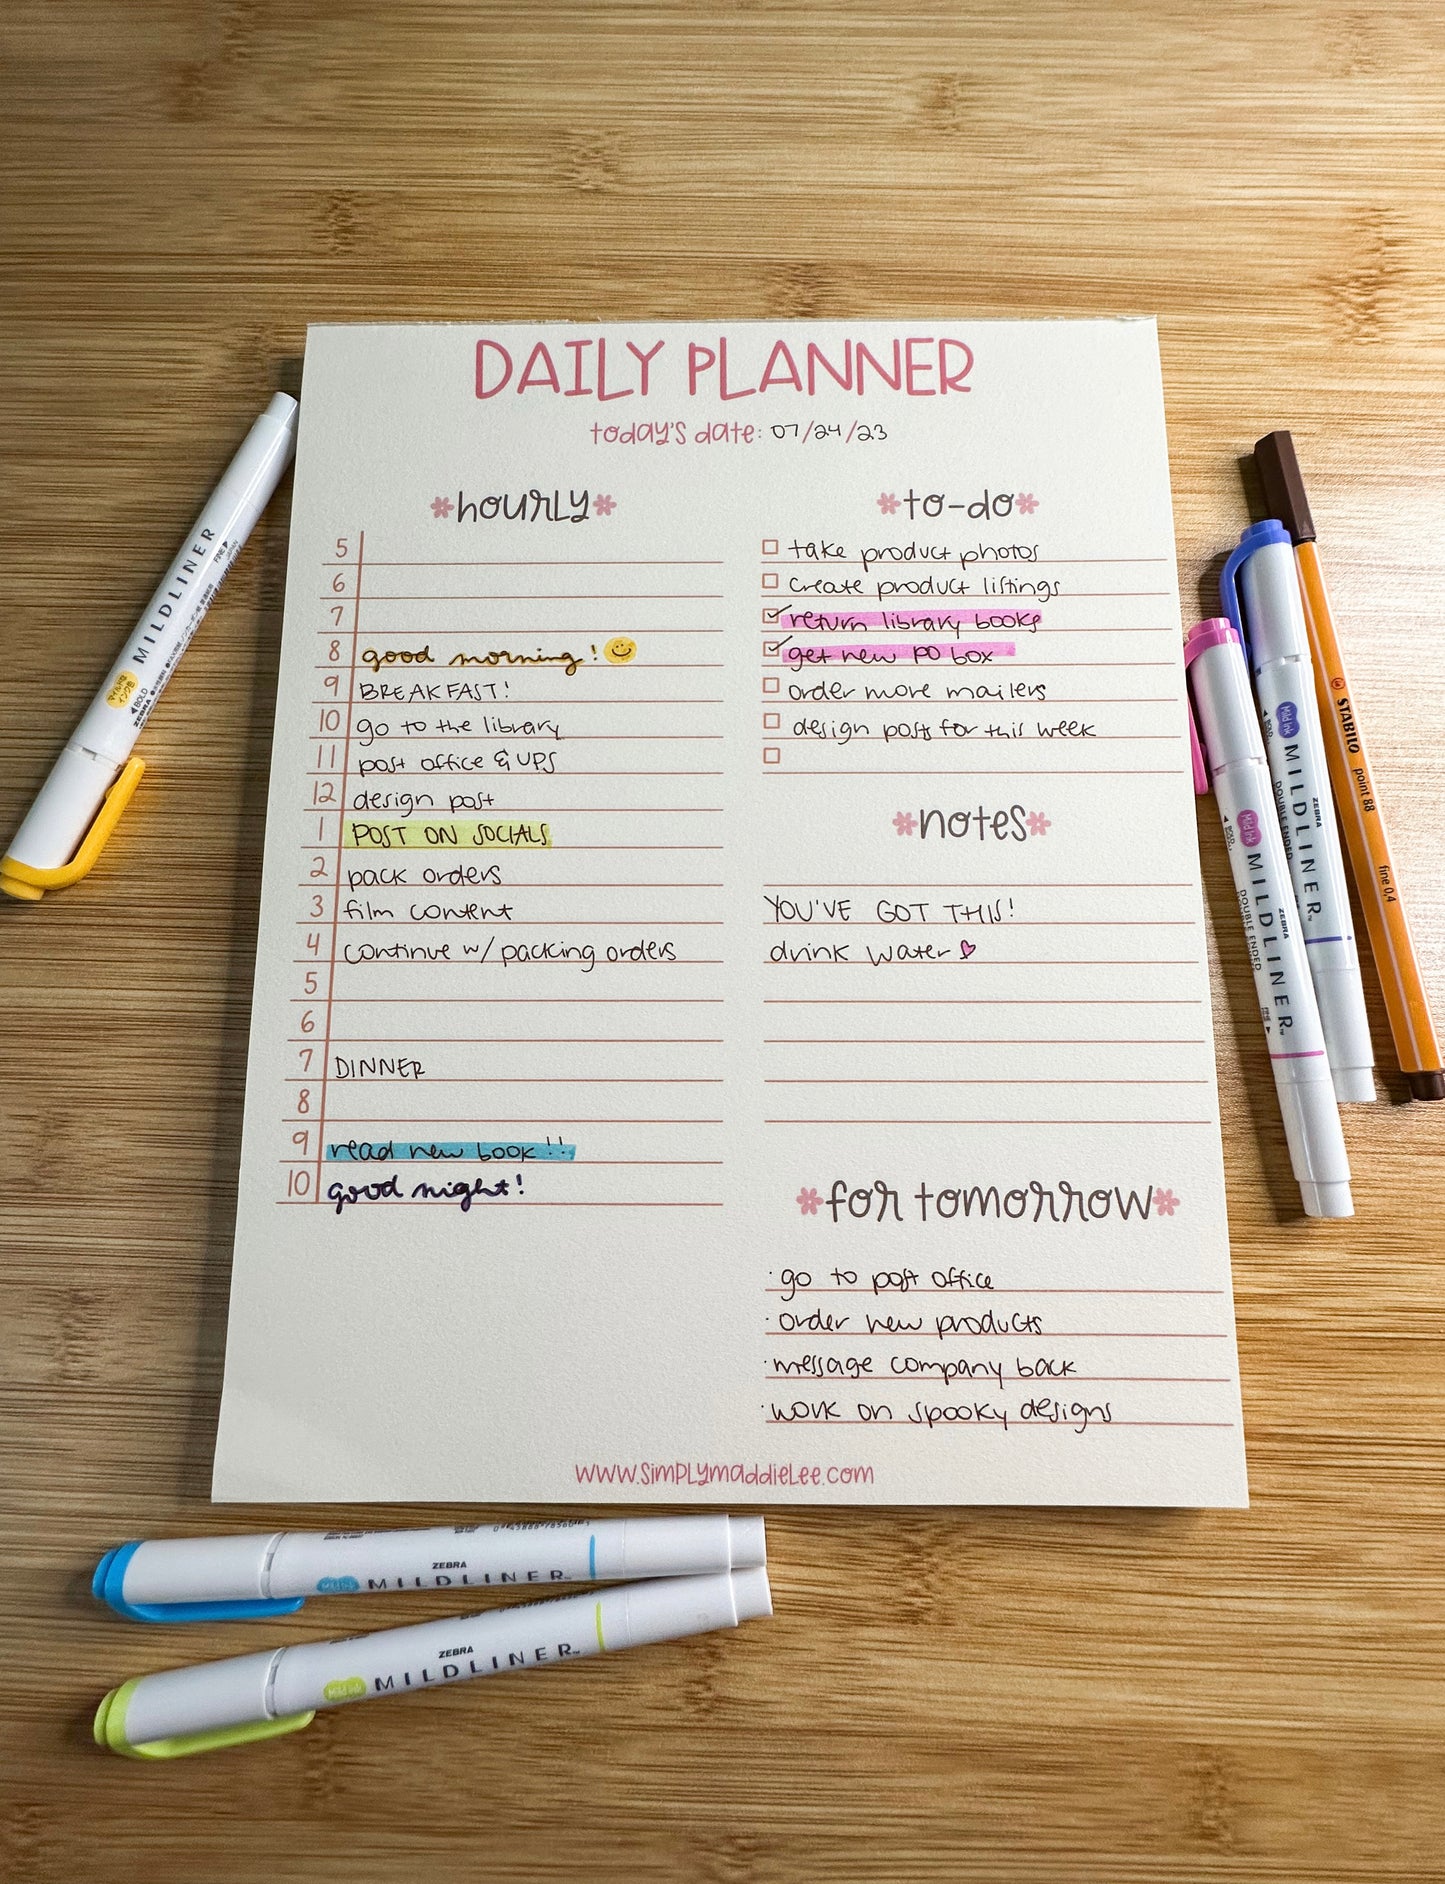 DAILY PLANNER
today's date: 07/24/23
hourly
5
6
7
8 good morning!
9 BREAKFAST!
10 go to the library
11 post office & UPS
12 design post
1 POST ON SOCIALS
2 pack orders
3 film content
4 continue w/ packing orders
5
6
7 DINNER
8
9 read new book!!
10 good night!
to-do
take product photos
create product listings
return library books
get new PO box
order more mailers
design posts for this week
notes
YOU'VE GOT THIS!
drink water
for tomorrow
· go to post office
· order new products
· message company back
· work on spooky designs
www.simplymaddielee.com
MILDLINER
BOLD
ZEBRA
FINE
JAPAN
Mild ink
ZEBRA
MILDLINER
DOUBLE ENDED
Mild ink
ZEBRA
MILDLINER
DOUBLE ENDED
STABILO point 88 fine 0,4
ZEBRA
MILDLINER
ZEBRA
Mild ink MILDLINER